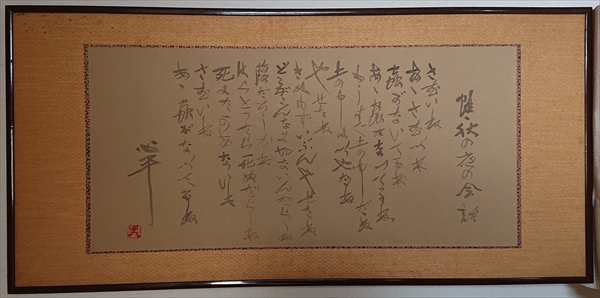 蛙・秋の夜の会話
さむいね
あゝさむいね
蟲がないてるね
あゝ蟲がないてるね
もうすぐ土の中だね
土の中はいやだね
やせたね
きみもずいぶんやせたね
どこがこんなにせつないんだらうね
腹だらうかね
はらとったら死ぬだらうね
死にたくはないね
さむいね
あゝ蟲がないてるね
心平